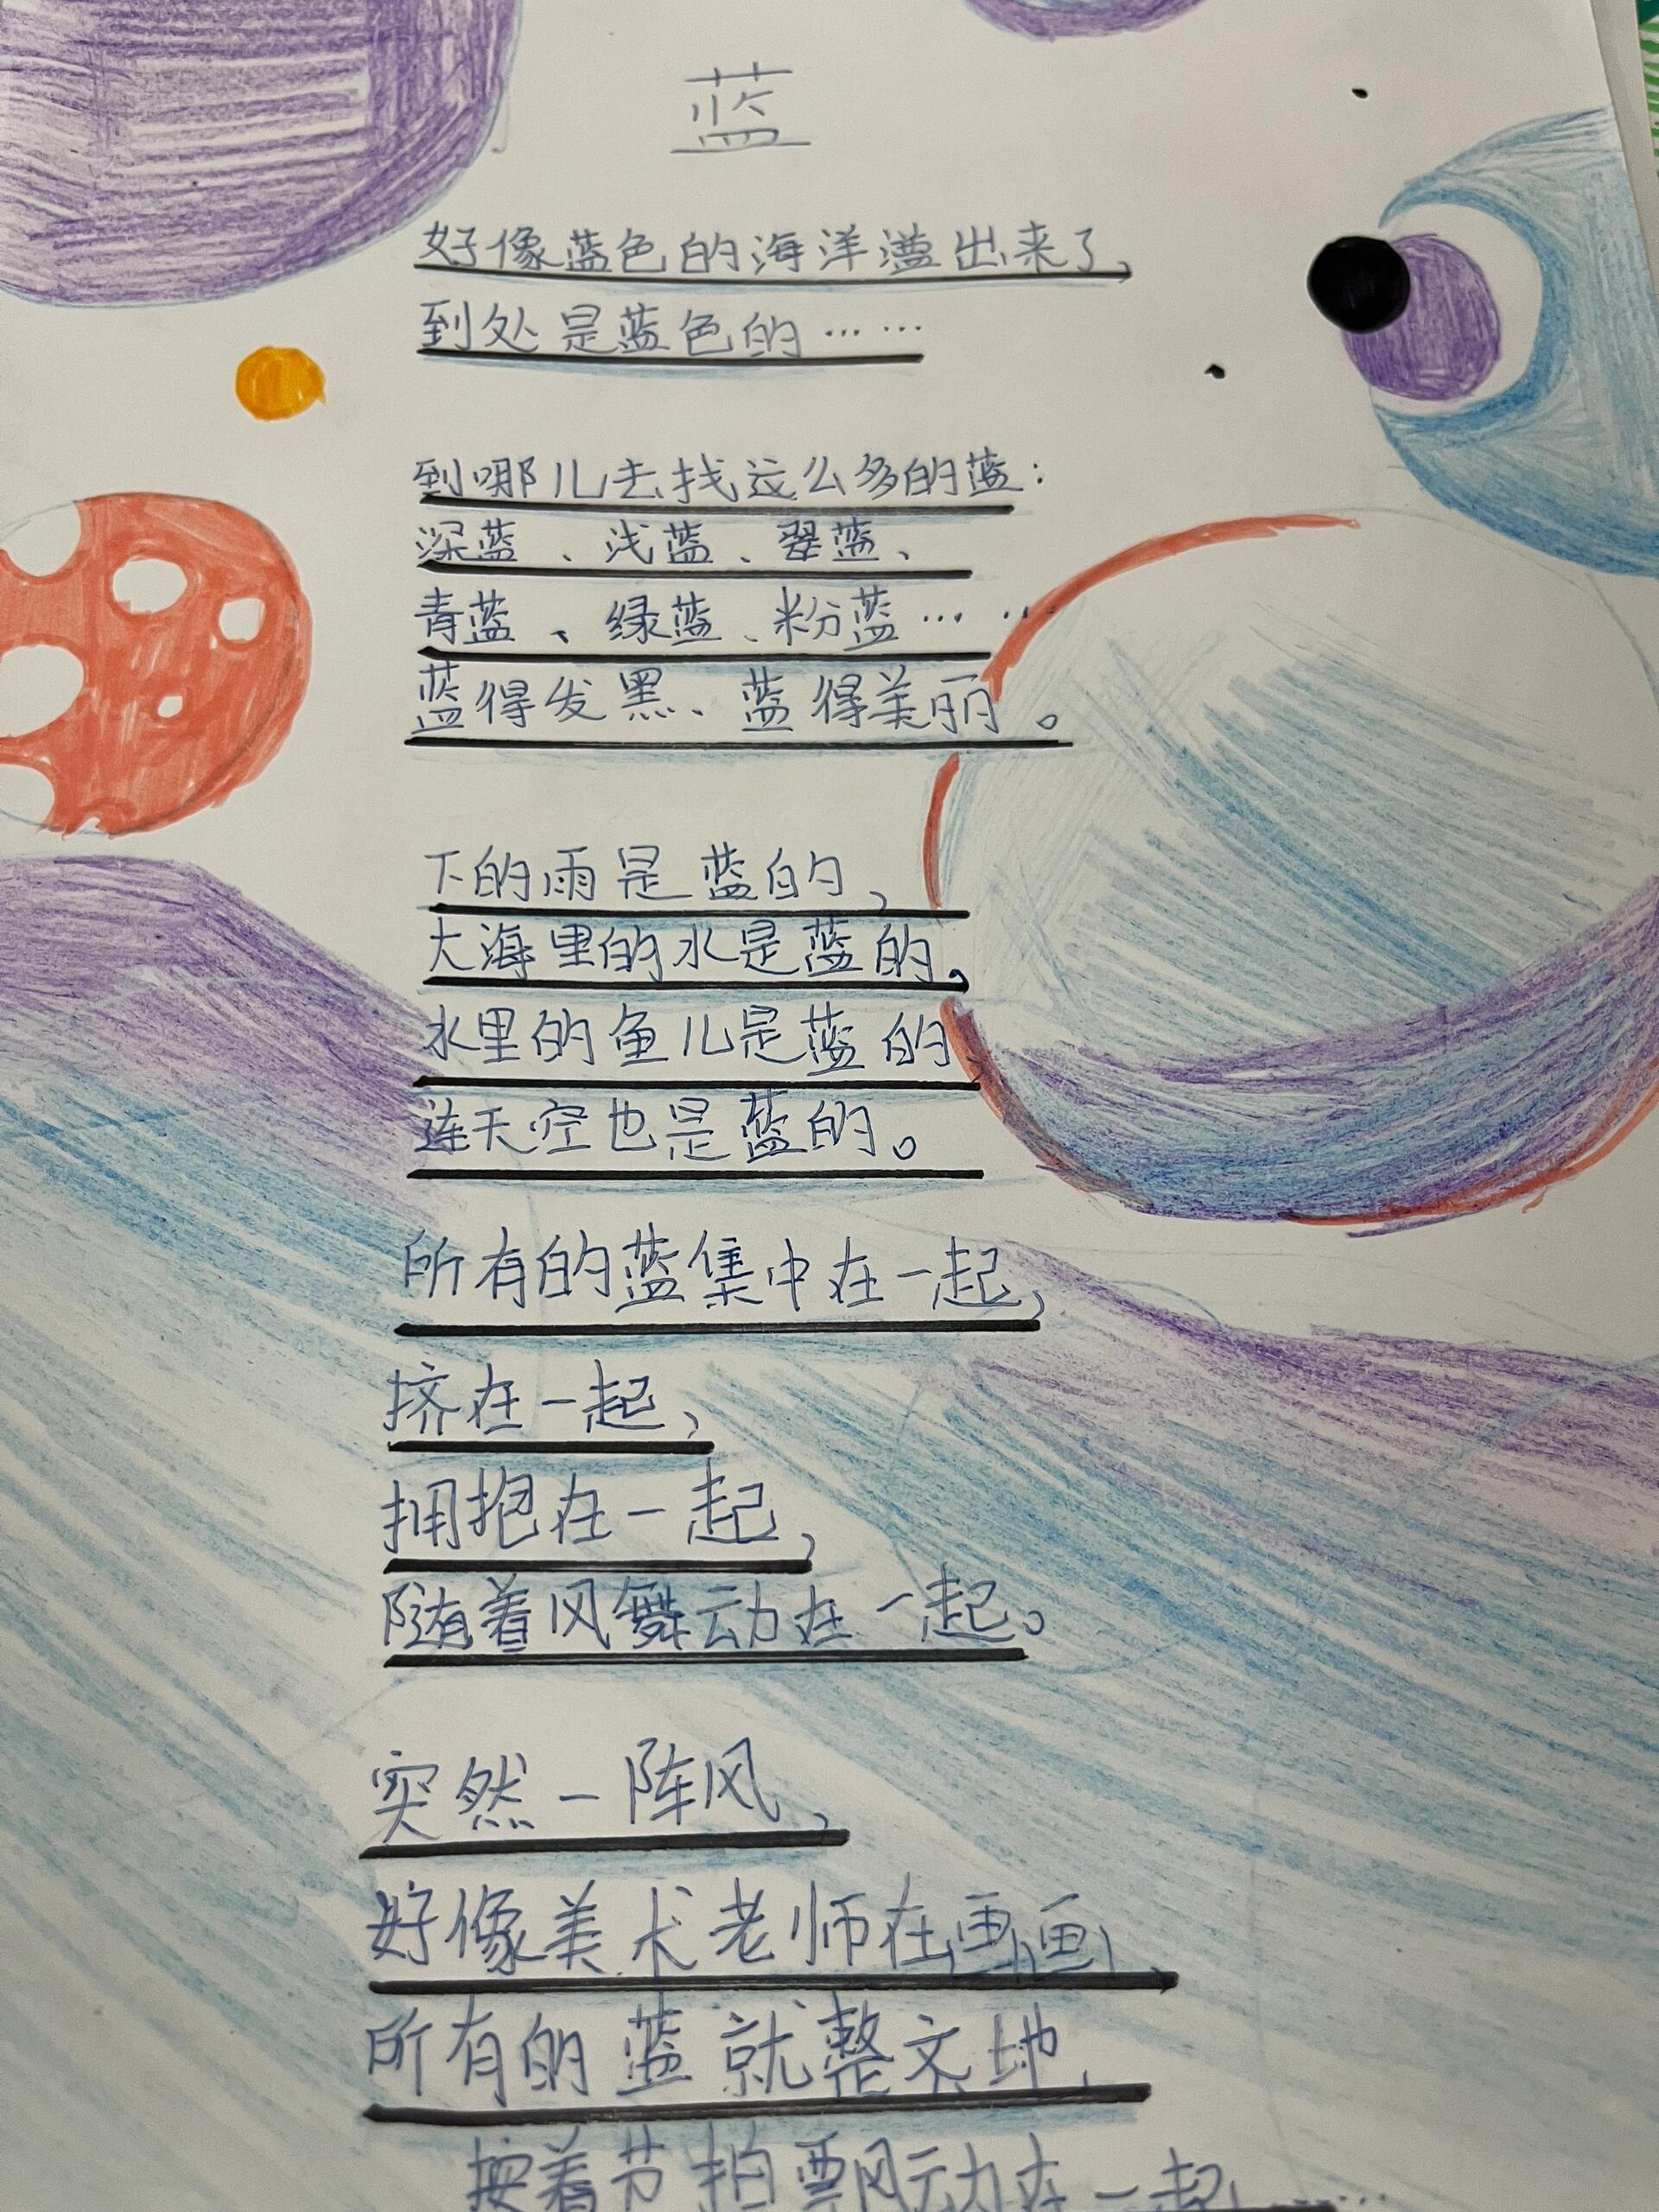 蓝
好像蓝色的海洋溢出来了，
到处是蓝色的……
到哪儿去找这么多的蓝：
深蓝、浅蓝、翠蓝、
青蓝、绿蓝、粉蓝……
蓝得发黑、蓝得美丽。
下的雨是蓝的，
大海里的水是蓝的，
水里的鱼儿是蓝的
连天空也是蓝的。
所有的蓝集中在一起，
挤在一起，
拥抱在一起，
随着风舞动在一起。
突然一阵风，
好像美术老师在画画，
所有的蓝就整齐地，
按着节拍飘动在一起……